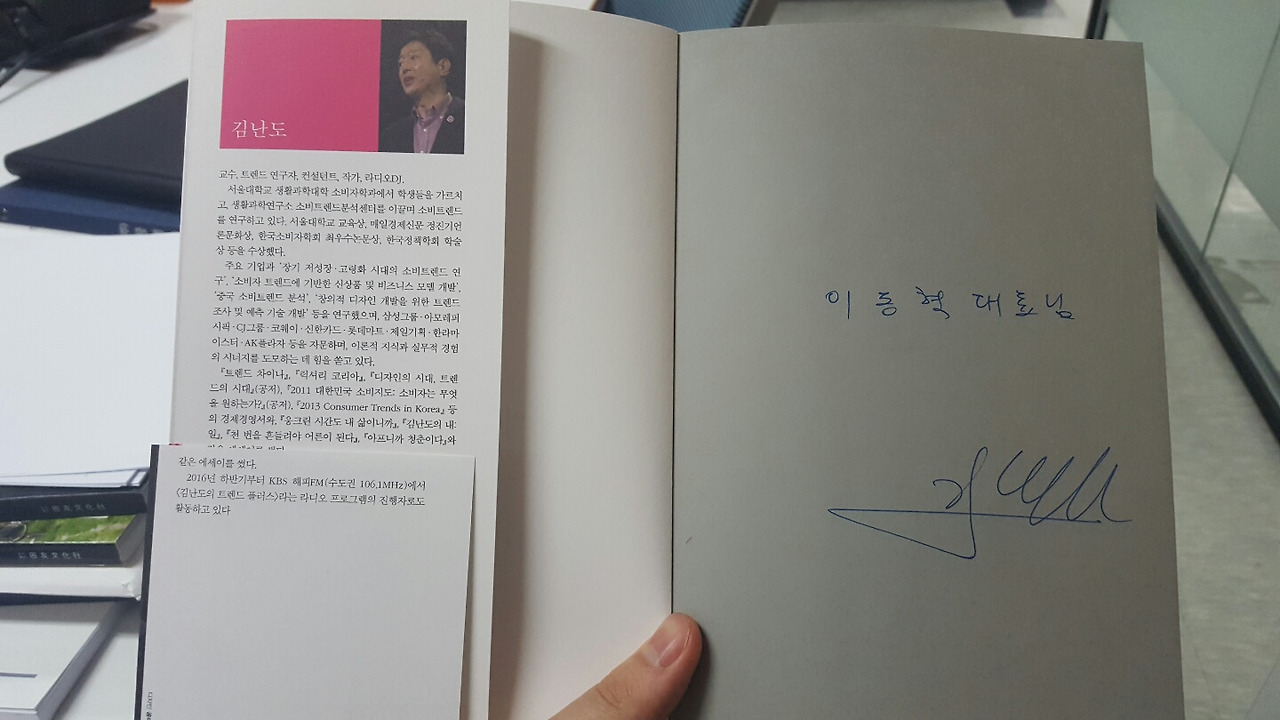 김난도
교수, 트렌드 연구자, 컨설턴트, 작가, 라디오DJ.
서울대학교 생활과학대학 소비자학과에서 학생들을 가르치
고, 생활과학연구소 소비트렌드분석센터를 이끌며 소비트렌드
를 연구하고 있다. 서울대학교 교육상, 매일경제신문 정진기언
론문화상, 한국소비자학회 최우수논문상, 한국정책학회 학술
상 등을 수상했다.
주요 기업과 '장기 저성장·고령화 시대의 소비트렌드 연
구', '소비자 트렌드에 기반한 신상품 및 비즈니스 모델 개발',
'중국 소비트렌드 분석', '창의적 디자인 개발을 위한 트렌드
조사 및 예측 기술 개발' 등을 연구했으며, 삼성그룹·아모레퍼
시픽·CJ그룹·코웨이·신한카드·롯데마트·제일기획·한라마
이스터·AK플라자 등을 자문하며, 이론적 지식과 실무적 경험
의 시너지를 도모하는 데 힘을 쏟고 있다.
『트렌드 차이나』, 『럭셔리 코리아』, 『디자인의 시대, 트렌
드의 시대』(공저), 『2011 대한민국 소비지도: 소비자는 무엇
을 원하는가?』(공저), 『2013 Consumer Trends in Korea』 등
의 경제경영서와, 『웅크린 시간도 내 삶이니까』, 『김난도의 내:
일』, 『천 번을 흔들려야 어른이 된다』, 『아프니까 청춘이다』와
같은 에세이를 썼다.
2016년 하반기부터 KBS 해피FM(수도권 106.1MHz)에서
〈김난도의 트렌드 플러스〉라는 라디오 프로그램의 진행자로도
활동하고 있다
이동혁 대표님